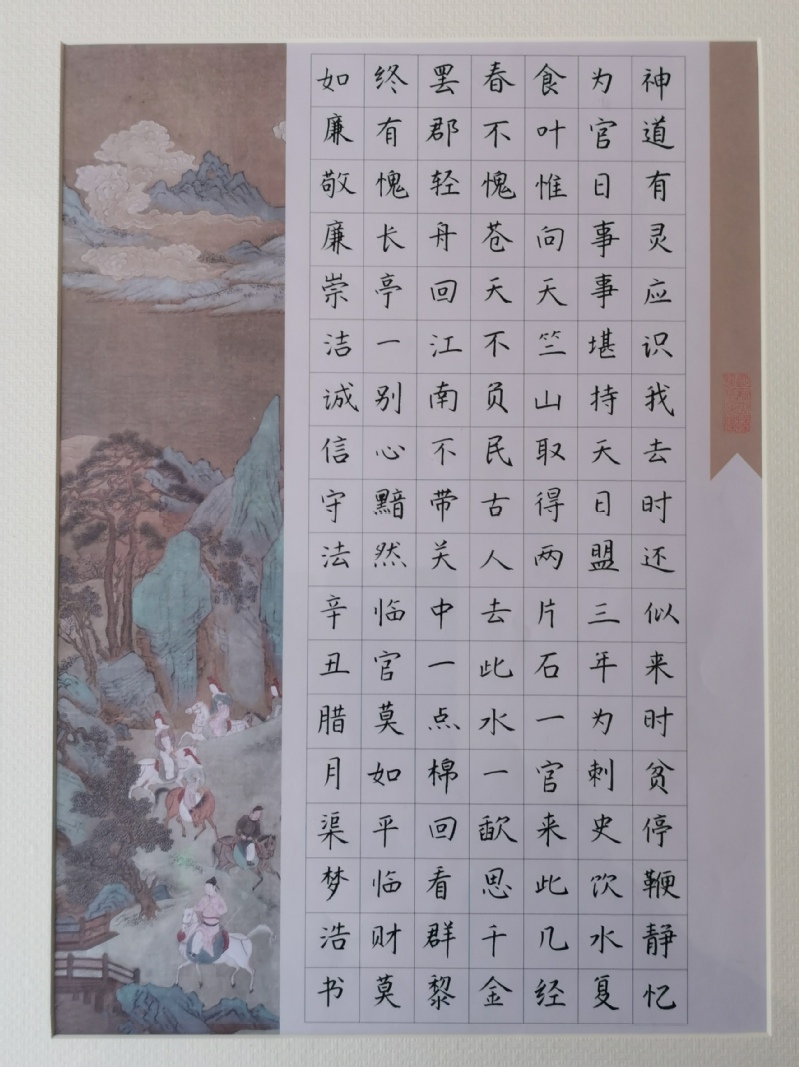 神道有灵应识我去时还似来时贫停鞭静忆
为官日事事堪持天日盟三年为刺史饮水复
食叶惟向天竺山取得两片石一官来此几经
春不愧苍天不负民古人去此水一歃思千金
罢郡轻舟回江南不带关中一点棉回看群黎
终有愧长亭一别心黯然临官莫如平临财莫
如廉敬廉崇洁诚信守法辛丑腊月渠梦浩书